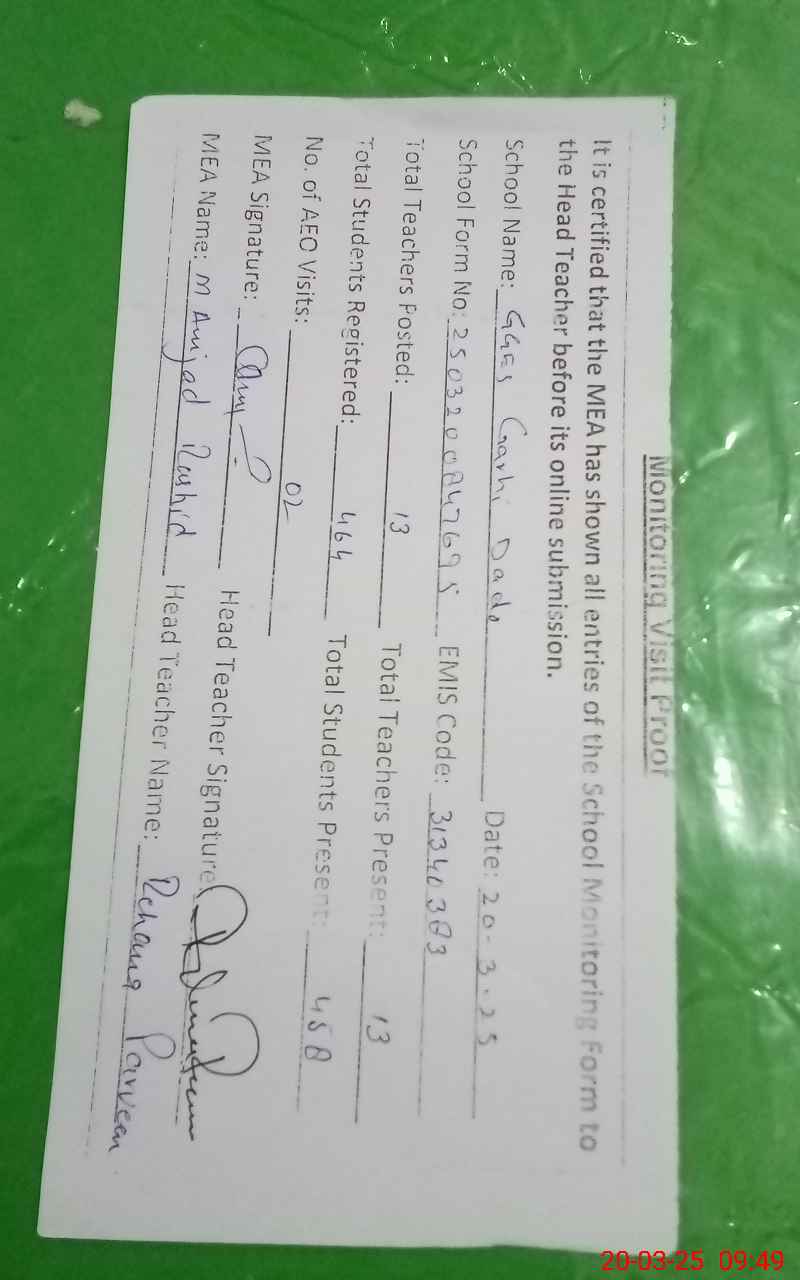 Monitoring Visit Proof
It is certified that the MEA has shown all entries of the School Monitoring Form to
the Head Teacher before its online submission.
School Name: GGES Garhi Dado Date: 20-3-25
School Form No: 2503200847695 EMIS Code: 31340383
Total Teachers Posted: 13 Total Teachers Present: 13
Total Students Registered: 464 Total Students Present: 458
No. of AEO Visits: 02
MEA Signature: Head Teacher Signature:
MEA Name: M Amjad Rashid Head Teacher Name: Rehana Parveen
20-03-25 09:49